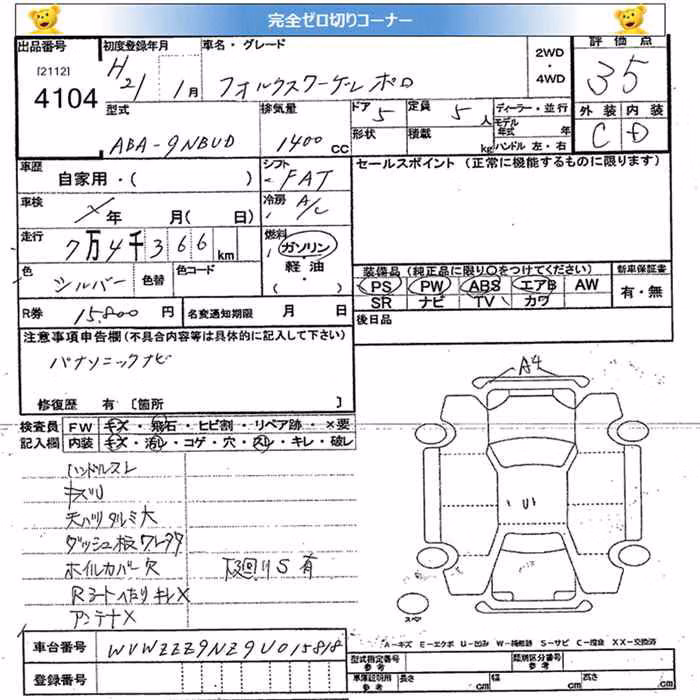 完全ゼロ切りコーナー
出品番号 初度登録年月 車名・グレード 2WD・4WD 評価点
[2112] 4104 H21 1月 フォルクスワーゲン ポロ 35
型式 ABA-9NBUD 排気量 1400 CC ドア 5 定員 5人 ディーラー・並行 外装 内装
形状 積載 kg モデル年式 年 ハンドル 左・右 C D
車歴 自家用・( ) シフト FAT セールスポイント (正常に機能するものに限ります)
車検 X年 月( 日) 冷房 A/C
走行 7万4千366km 燃料 ガソリン・軽油・( )
色 シルバー 色替 色コード
装備品 (純正品に限り○をつけてください) 新車保証書
PS PW ABS エアB AW 有・無
SR ナビ TV カワ
R券 15,800円 名変期限通知 月 日 後日品
注意事項申告欄 (不具合内容等は具体的に記入して下さい)
パナソニックナビ
修復歴 有 〔箇所 〕
検査員 FW キズ・飛石・ヒビ割・リペア跡・×要
記入欄 内装 キズ・汚レ・コゲ・穴・スレ・キレ・破レ
A4
U1
ハンドルスレ
キズU
天バリタルミ大
ダッシュ板ワレ
ホイルカバー欠 下廻りS有
RシートへたりキレX
アンテナX
スペア
車台番号 WVWZZZ9NZ9U015818
登録番号
A-キズ E-エクボ U-凹み W-補修跡 S-サビ C-腐食 XX-交換済
型式指定番号 参考 類別区分番号 参考
車庫証明用 参考 長さ cm 幅 cm 高さ cm